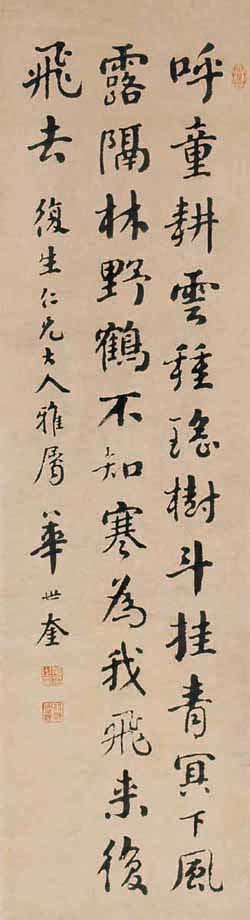 呼童耕雲種瑤樹斗挂青冥下風
露隔林野鶴不知寒為我飛来復
飛去
復生仁兄大人雅屬
華世奎